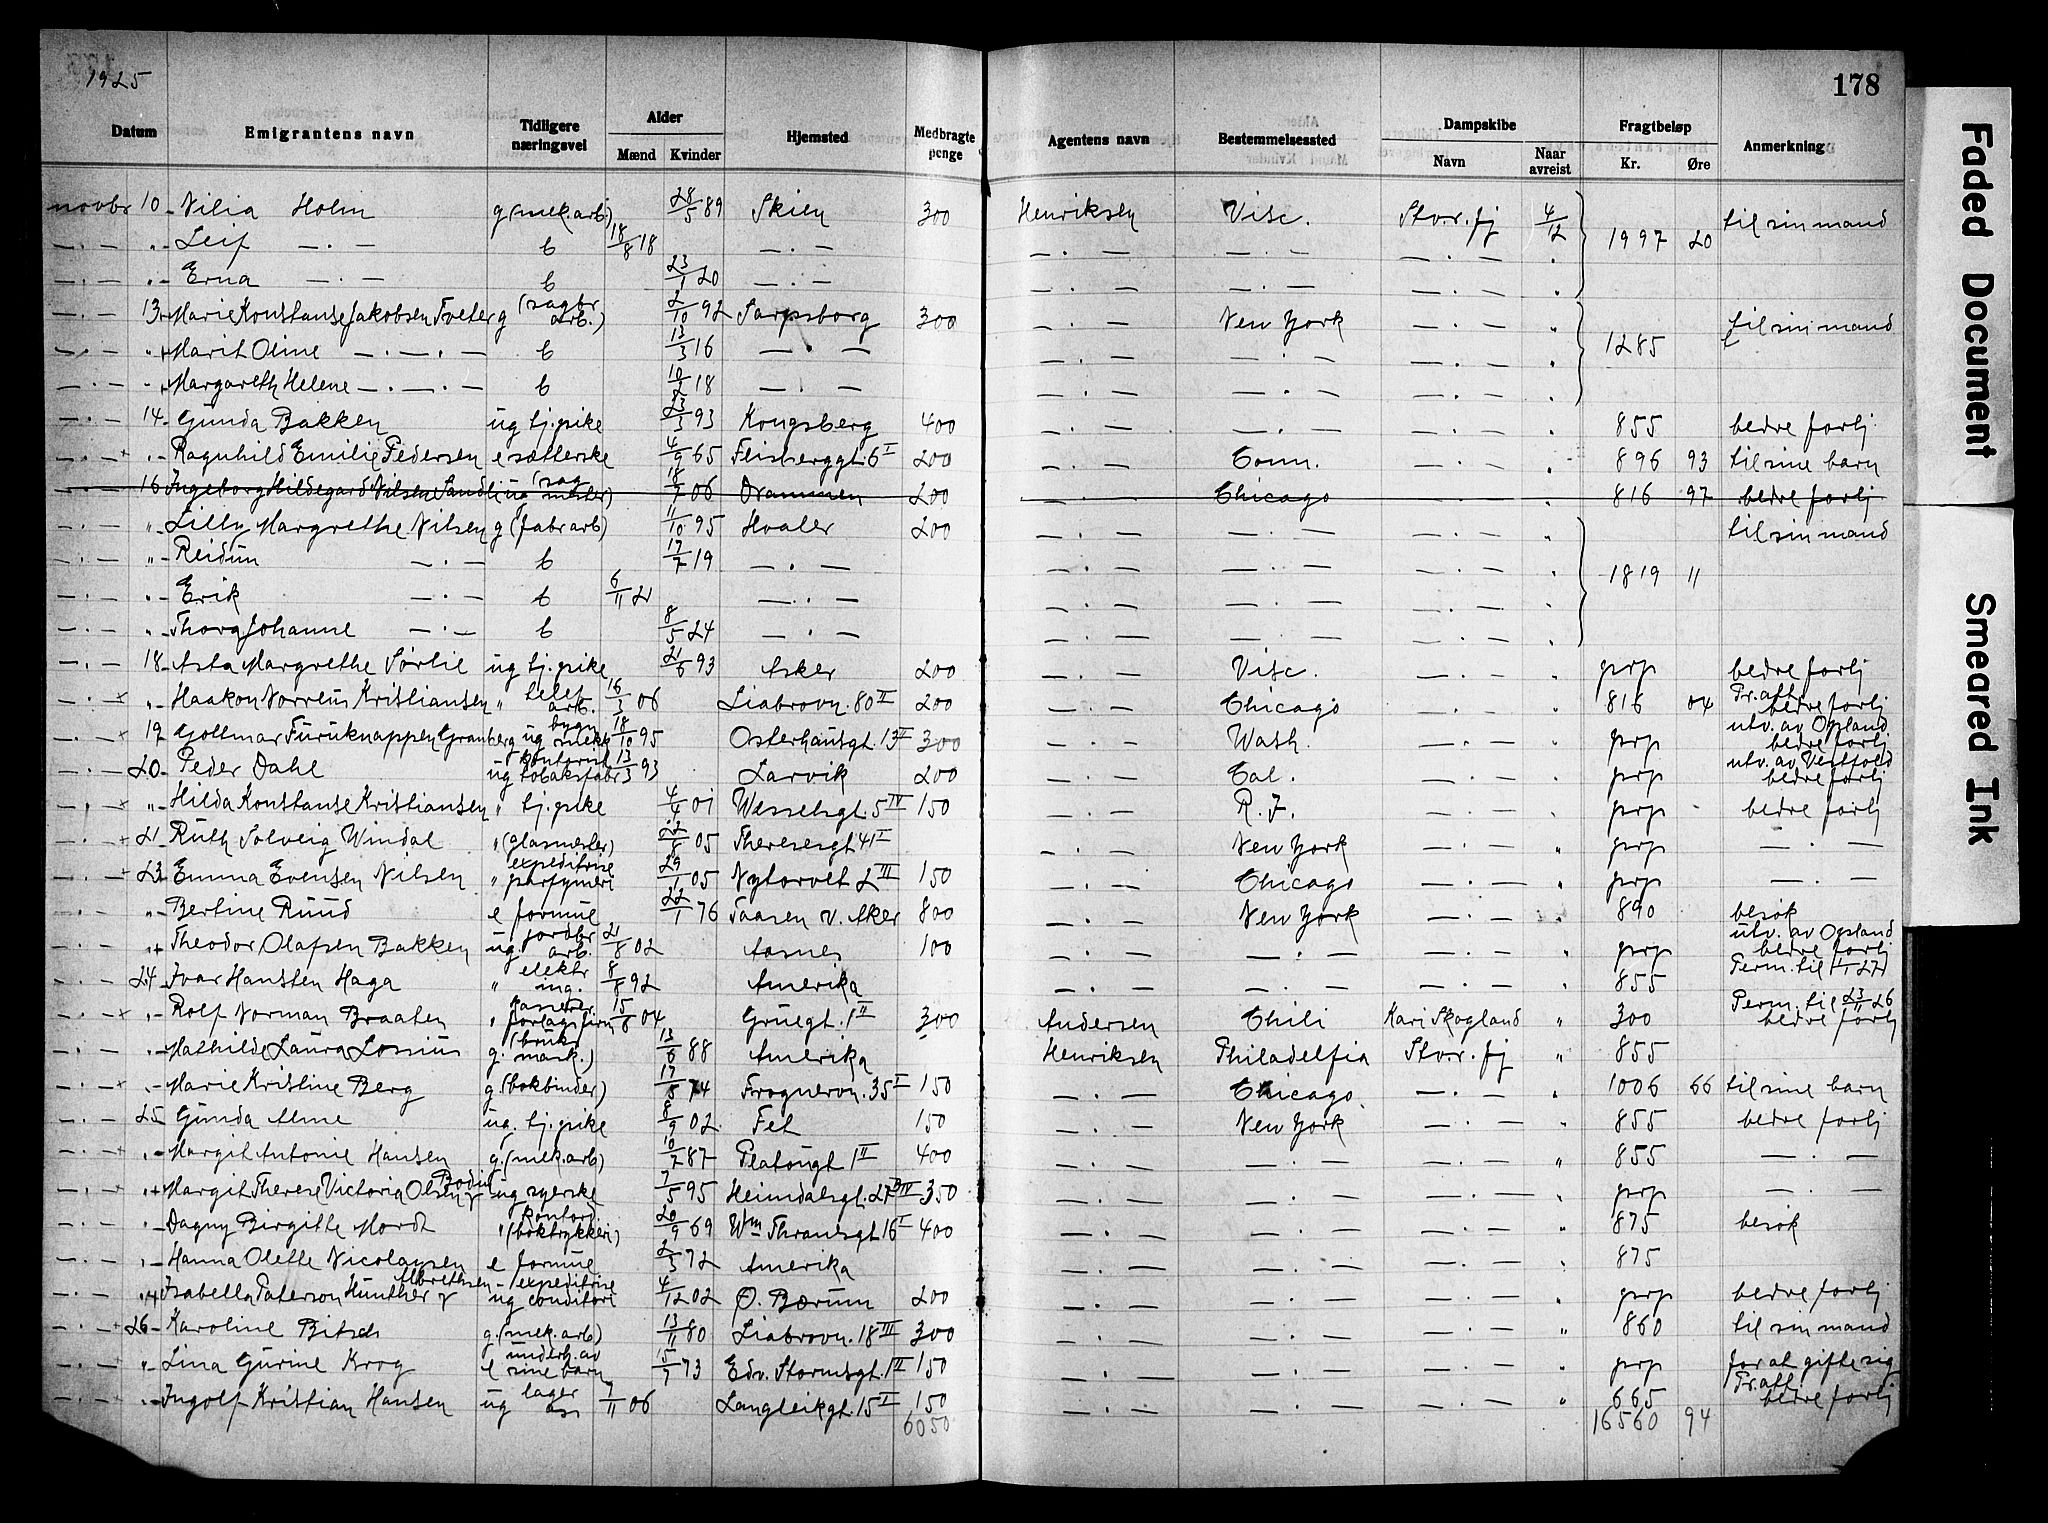 1925
178
Datum Emigrantens navn Tidligere næringsvei Alder Mænd Kvinder Hjemsted Medbragte penge Agentens navn Bestemmelsessted Dampskibe Navn Naar avreist Fragtbeløp Kr. Øre Anmerkning
novbr 10 Nilia Holm g (mek.arb.) 28/5 89 Skien 300 Henriksen Visc. Stvr.fj 4/12 1997 20 til sin mand
— . — " Leif — . — b 18/8 18 — . — — . — — . — — . — "
— . — " Erna — . — b 23/1 20 — . — — . — — . — — . — "
— . — 13 Marie Konstanse Jakobsen Tveter g (sagbr arb.) 2/10 92 Sarpsborg 300 — . — New York — . — " 1285 til sin mand
— . — " Marit Oline — . — . — b 13/3 16 — . — — . — — . — — . — "
— . — " Margareth Helene — . — . — b 10/2 18 — . — — . — — . — — . — "
— . — 14 Gunda Bakken ug tj.pike 23/3 93 Kongsberg 400 — . — — . — — . — " 855 bedre forhj
— . — " Ragnhild Emilie Pedersen e sætterske 4/9 65 Fleisberggt. 6 I 200 — . — Conn. — . — " 896 93 til sine barn
— . — 16 Ingeborg Hildegard Nilsen Sandli ug (sag mester) 18/7 06 Drammen 200 — . — Chicago — . — " 816 97 bedre forhj
— . — " Lilly Margrethe Nilsen g (fabr arb) 11/10 95 Hvaler 200 — . — — . — — . — " 1819 11 til sin mand
— . — " Reidun — . — b 17/7 19 — . — — . — — . — — . — "
— . — " Erik — . — b 6/11 21 — . — — . — — . — — . — "
— . — " Thora Johanne — . — b 8/5 24 — . — — . — — . — — . — "
— . — 18 Asta Margrethe Sørlie ug tj.pike 21/6 93 Asker 200 — . — Visc. — . — " prp bedre forhj
— . — × " Haakon Norreus Kristiansen " telef. arb. 16/3 06 Liabrovn. 80 II 200 — . — Chicago — . — " 816 04 Fr.att. bedre forhj
— . — × 19 Gollmar Furuknappen Granberg ug bygn. mekk 18/10 95 Osterhausgt. 13 II 300 — . — Wash. — . — " prp utv. av Opland bedre forhj
— . — 20 Peder Dahl ug kontorist tobaksfabr 13/3 93 Larvik 200 — . — Cal. — . — " prp utv. av Vestfold bedre forhj
— . — × " Hilda Konstanse Kristiansen " tj.pike 4/4 01 Wesselsgt. 5 IV 150 — . — R. I. — . — " prp bedre forhj
— . — + 21 Ruth Solveig Windal " (glasmester) 22/8 05 Theresesgt 41 I — . — New York — . — " prp — . —
— . — + 23 Emma Evensen Nilsen " expeditrise parfymeri 29/1 05 Nytorvet 2 III 150 — . — Chicago — . — " prp — . —
— . — " Bertine Ruud e formue 22/1 76 Taasen v. Aker 800 — . — New York — . — " 890 besøk
— . — " Theodor Olafsen Bakken ug. jordbr arb. 21/8 02 Aasnes 100 — . — — . — — . — " prp utv. av Opland bedre forhj
— . — 24 Ivar Hansten Haga " elektr ing. 8/8 92 Amerika — . — — . — — . — " 855 Perm. til 1/1 27
— . — × " Rolf Norman Braaten " kasserer forlagsfirm 15/8 04 Gruegt. 1 II 300 Andersen Chili Kari Skogland " 300 Perm. til 23/11 26 bedre forhj
— . — " Mathilde Laura Lossius g. (bruks mask.) 13/6 88 Amerika Henriksen Philadelfia Stvr.fj " 855
— . — × " Marie Kristine Berg g. (bokbinder) 17/8 74 Frognervn. 35 I 150 — . — Chicago. — . — " 1006 66 til sine barn
— . — 25 Gunda Alme ug. tj.pike 8/9 02 Fet 150 — . — New York — . — " 855 bedre forhj
— . — + " Margit Antonie Hansen g. (mek.arb) 10/7 87 Platougt 1 II 400 — . — — . — — . — " 855 — . —
— . — " Margit Therese Victoria Olsen Bodin ug syerske 7/5 95 Heimdalsgt. 27 IV 350 — . — — . — — . — " prp — . —
— . — " Dagny Birgitte Mordt " kontord (boktrykkeri) 20/9 69 Wm Thranesgt 16 I 400 — . — — . — — . — " 875 besøk
— . — " Hanna Olette Nicolaysen e formue 2/3 72 Amerika — . — — . — — . — " 875
— . — " Isabella Paterson Hunther Albrethsen ug expeditrise conditori 4/12 02 Ø. Bærum 200 — . — — . — — . — " prp bedre forhj
— . — + 26 Karoline Bitsch g. (mek.arb) 13/11 80 Liabrovn. 18 III 300 — . — — . — — . — " 860 til sin mand
— . — + " Lina Gurine Krog e underh. av sine barn 15/7 73 Edv. Stormsgt. 1 II 150 — . — — . — — . — " prp for at gifte sig
— . — " Ingolf Kristian Hansen ug lager ass 7/11 06 Langleikgt. 15 I 150 — . — — . — — . — " 665 Fr.att. bedre forhj
6050 16560 94
Faded Document
Smeared Ink